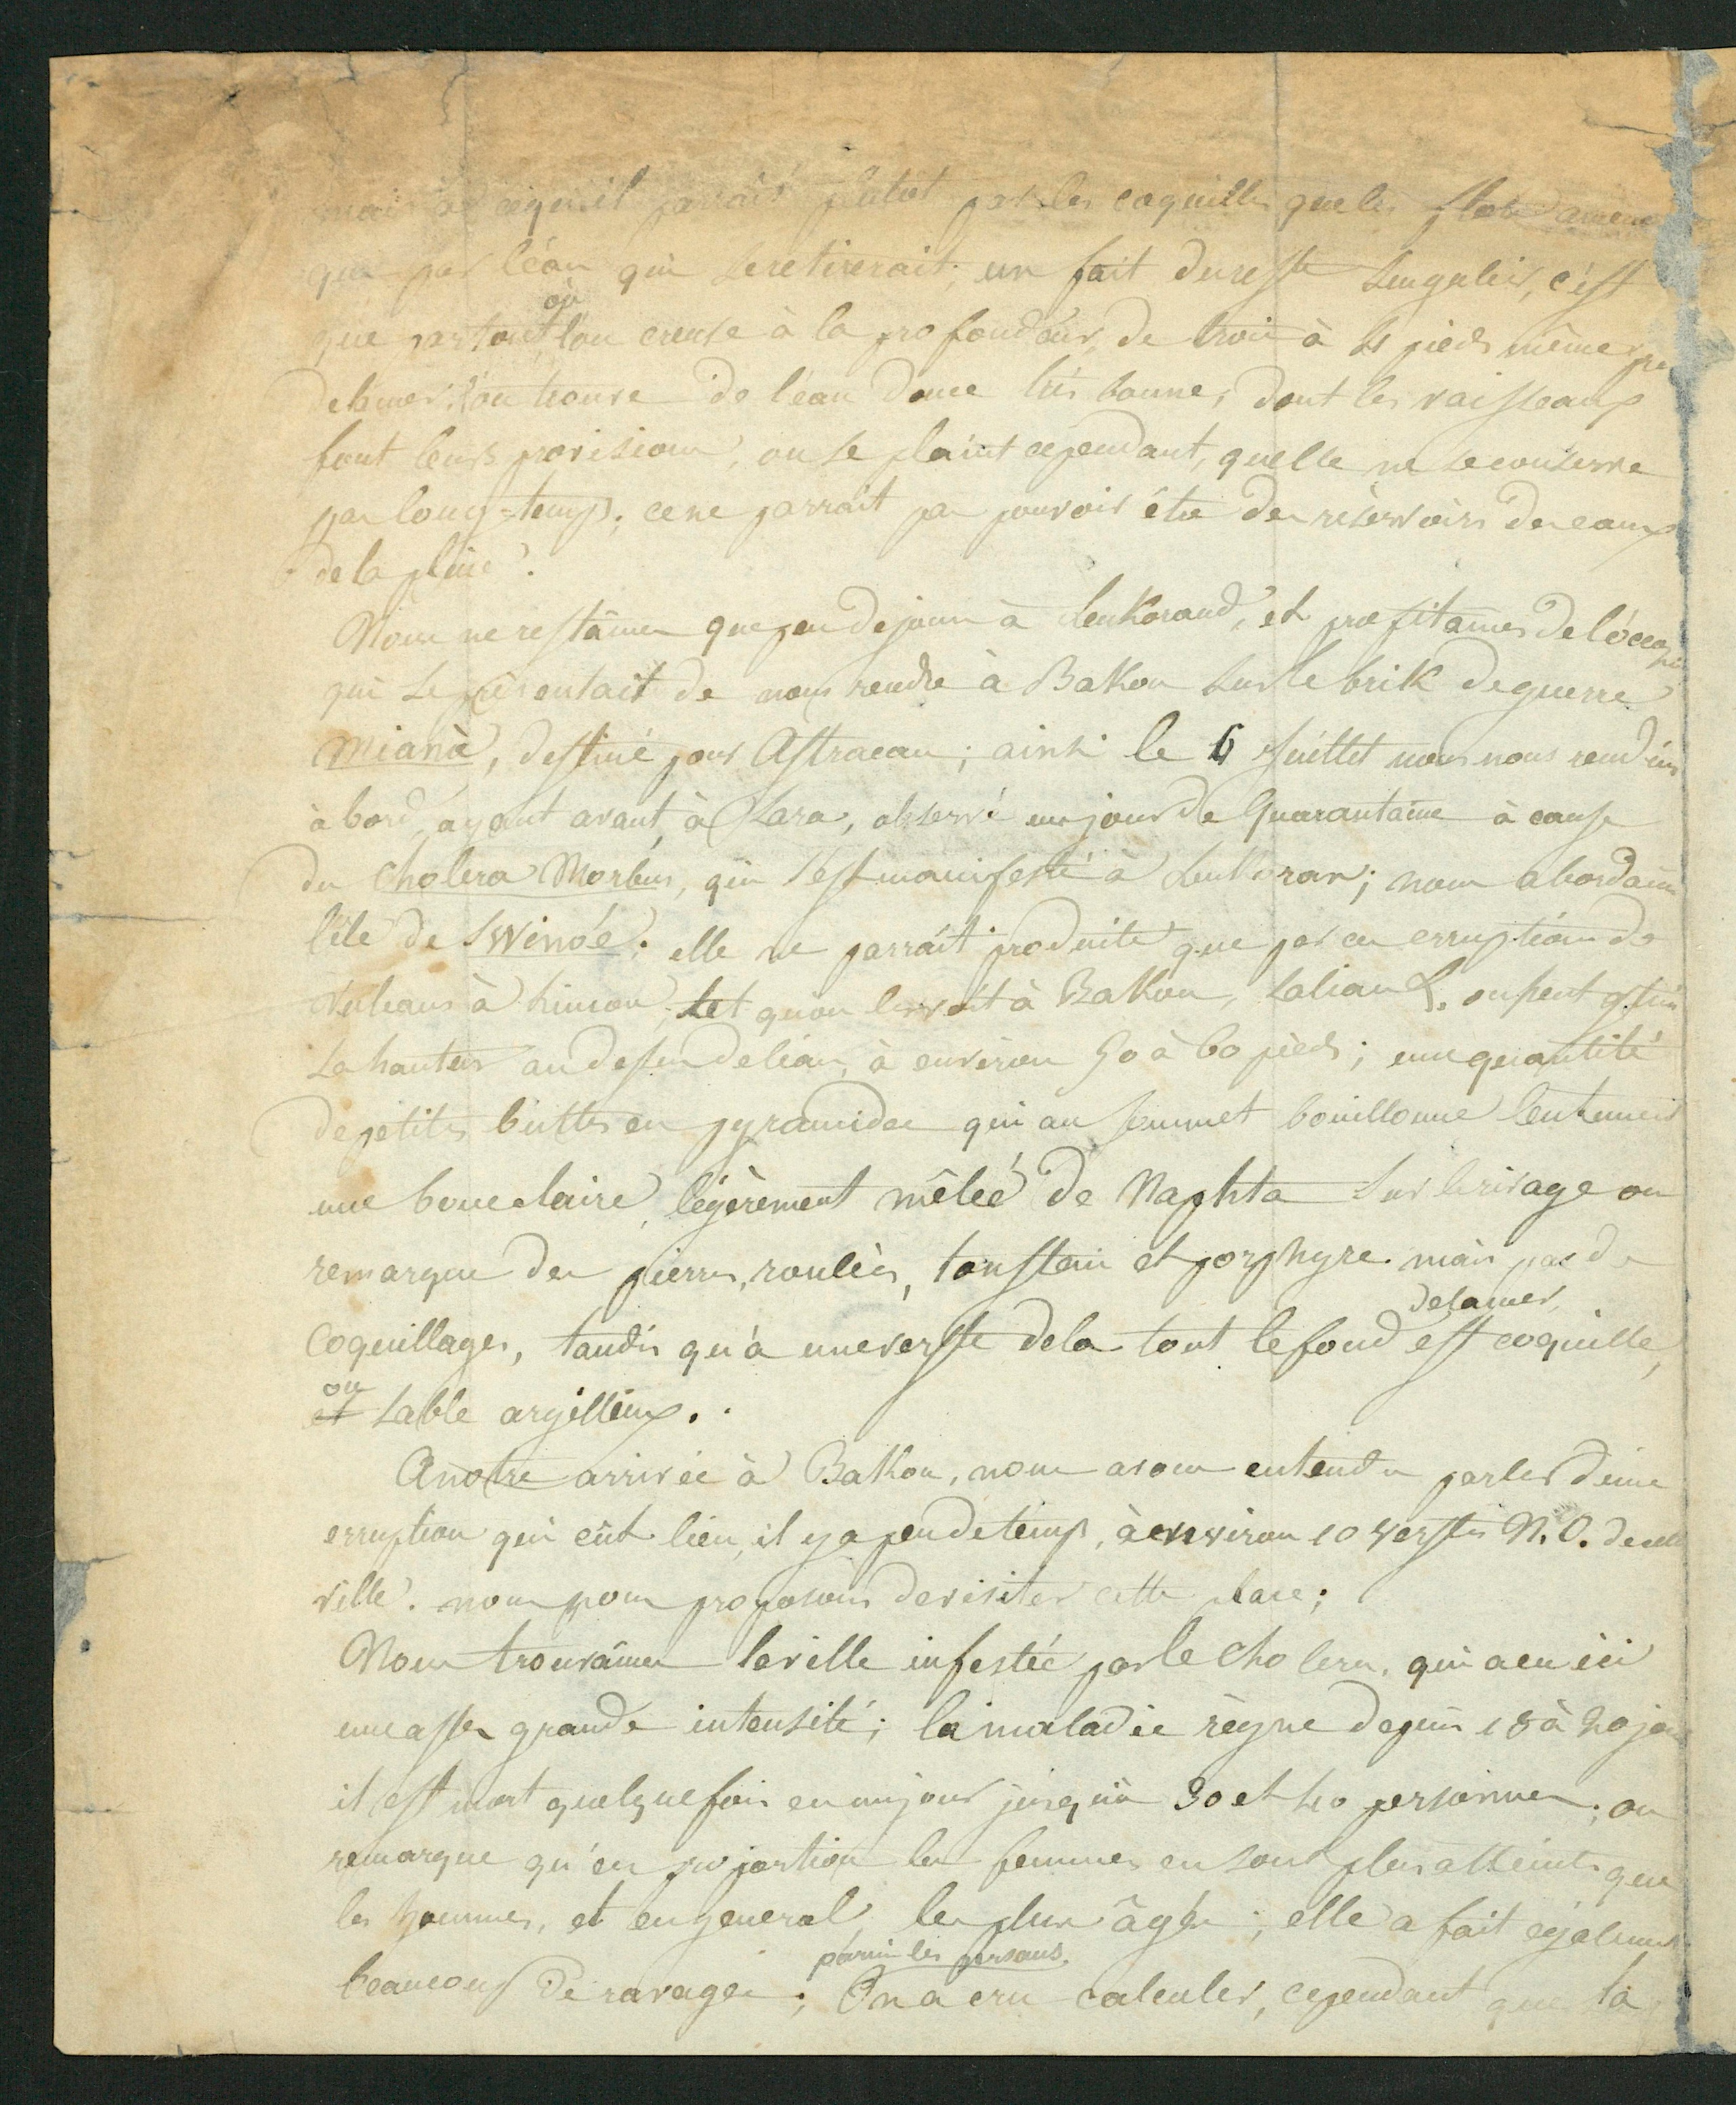 mais à ce qu'il parrait plutot par les coquilles que les flots amene
que par l'éau qui se retirerait; un fait du reste singulier, c'est
que partout où l'on creuse à la profondeur, de trois à 4 pieds même pre
de la mer, l'on trouve de l'eau douce trés bonne, dont les vaisseaux
font leurs provisions, on se plaint cependant, quelle ne se conserve
pas long-temps; ce ne parrait pas pouvoir être des réservoirs des eaux
de la pluie.
Nous ne restâmes que peu de jours à Lenkorand, et profitames de l'occasi
qui se présentait de nous rendre à Bakou sur le brik de guerre
Mianà, destiné pour Astracan; ainsi le 6 Juillet nous nous rendim
à bord, ayant avant, à Sara, observé un jour de Quarantaine à cause
du Cholera Morbus, qui s'est manifesté à Lenkoran; nous abordâmes
l'île de Swinóe; elle ne parrait produite que par en erruption de
Vulcans à limon, tel qu'on les voit à Bakou, Salian &. on peut estim
la hauteur au dessus de l'eau, à environ 50 à 60 pieds; une quantité
de petites buttes en pyramides qui au sommet bouillonne lentement
une boue claire, légèrement mêleé de Naphta sur le rivage on
remarque des pierres, roulées, tonstein et porphyre. mais pas de
Coquillages, tandis qu'à une verste de la tout le fond de la mer, est coquille,
et ou sable argilleux.
A notre arrivée à Bakou, nous avons entendu parler d'une
erruption qui eût lieu, il y a peu de temps, à environ 10 verstes N.O. de cette
ville. nous nous proposons de visiter cette place;
Nous trouvâmes la ville infestée par le Cholera, qui a eu ici
une assez grande intensité; la maladie règne depuis 18 à 20 jou
il est mort quelquefois en un jour jusqu'à 30 et 40 personnes; on
remarque qu'en proportion les femmes en sont plus atteints que
les hommes, et en general les plus âgés; elle a fait egalement
beaucoup de ravages parmi les persans; On a cru calculer, cependant que la